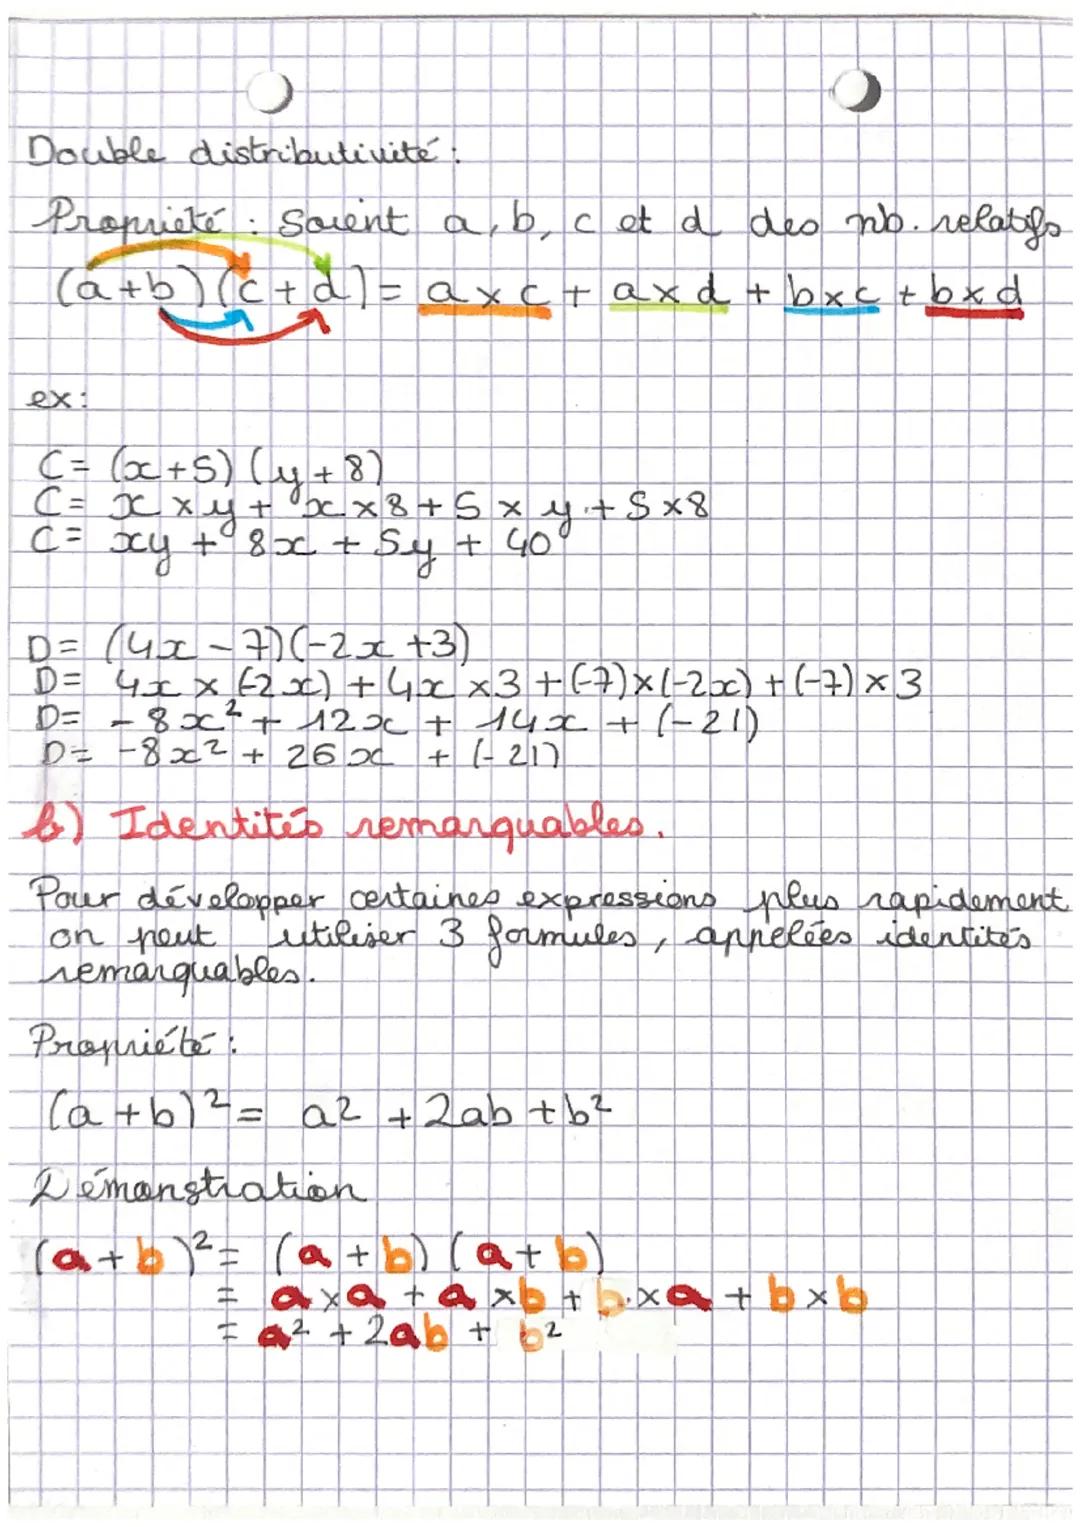 Double distributivité :
Propriété : Soient a, b, c et d des nb. relatifs
(a+b)(c+d) = a×c + a×d + b×c + b×d
ex:
C= (x+5)(y+8)
C= x × y + x × 8 + 5 × y + 5 × 8
C= xy + 8x + 5y + 40
D= (4x - 7)(-2x + 3)
D= 4x × (-2x) + 4x × 3 + (-7) × (-2x) + (-7) × 3
D= - 8x² + 12x + 14x + (-21)
D= -8x² + 26x + (-21)
b) Identités remarquables.
Pour développer certaines expressions plus rapidement
on peut utiliser 3 formules, appelées identités
remarquables.
Propriété :
(a + b)² = a² + 2ab + b²
Démonstration
(a + b)² = (a + b) (a + b)
= a×a + a×b + b×a + b×b
= a² + 2ab + b²